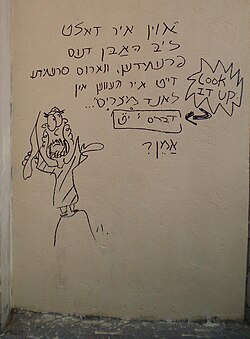 און איר זאלט
ליב האבן דעם
פרעמדען, ווארום פרעמדע
זייט איר געווען אין
לאנד מצרים...
דברים י' יט
אמן?
LOOK
IT UP